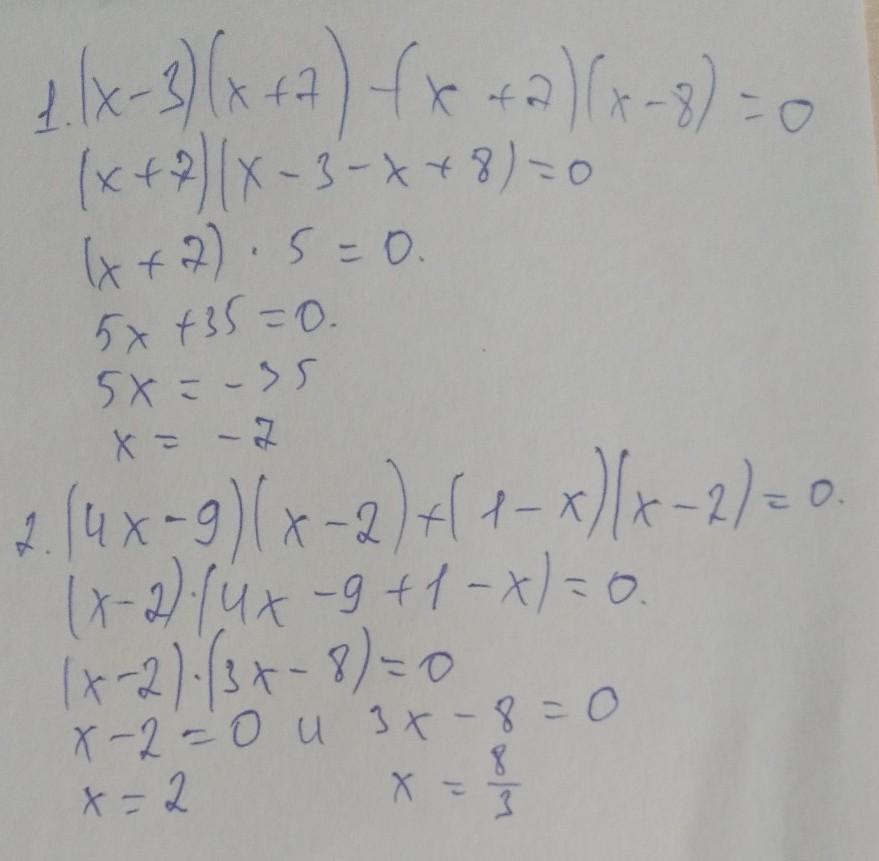 1. (x-3)(x+7)-(x+7)(x-8)=0
(x+7)(x-3-x+8)=0
(x+7)·5=0.
5x+35=0.
5x=-35
x=-7
2. (4x-9)(x-2)+(1-x)(x-2)=0.
(x-2)·(4x-9+1-x)=0.
(x-2)·(3x-8)=0
x-2=0 и 3x-8=0
x=2 x=8/3